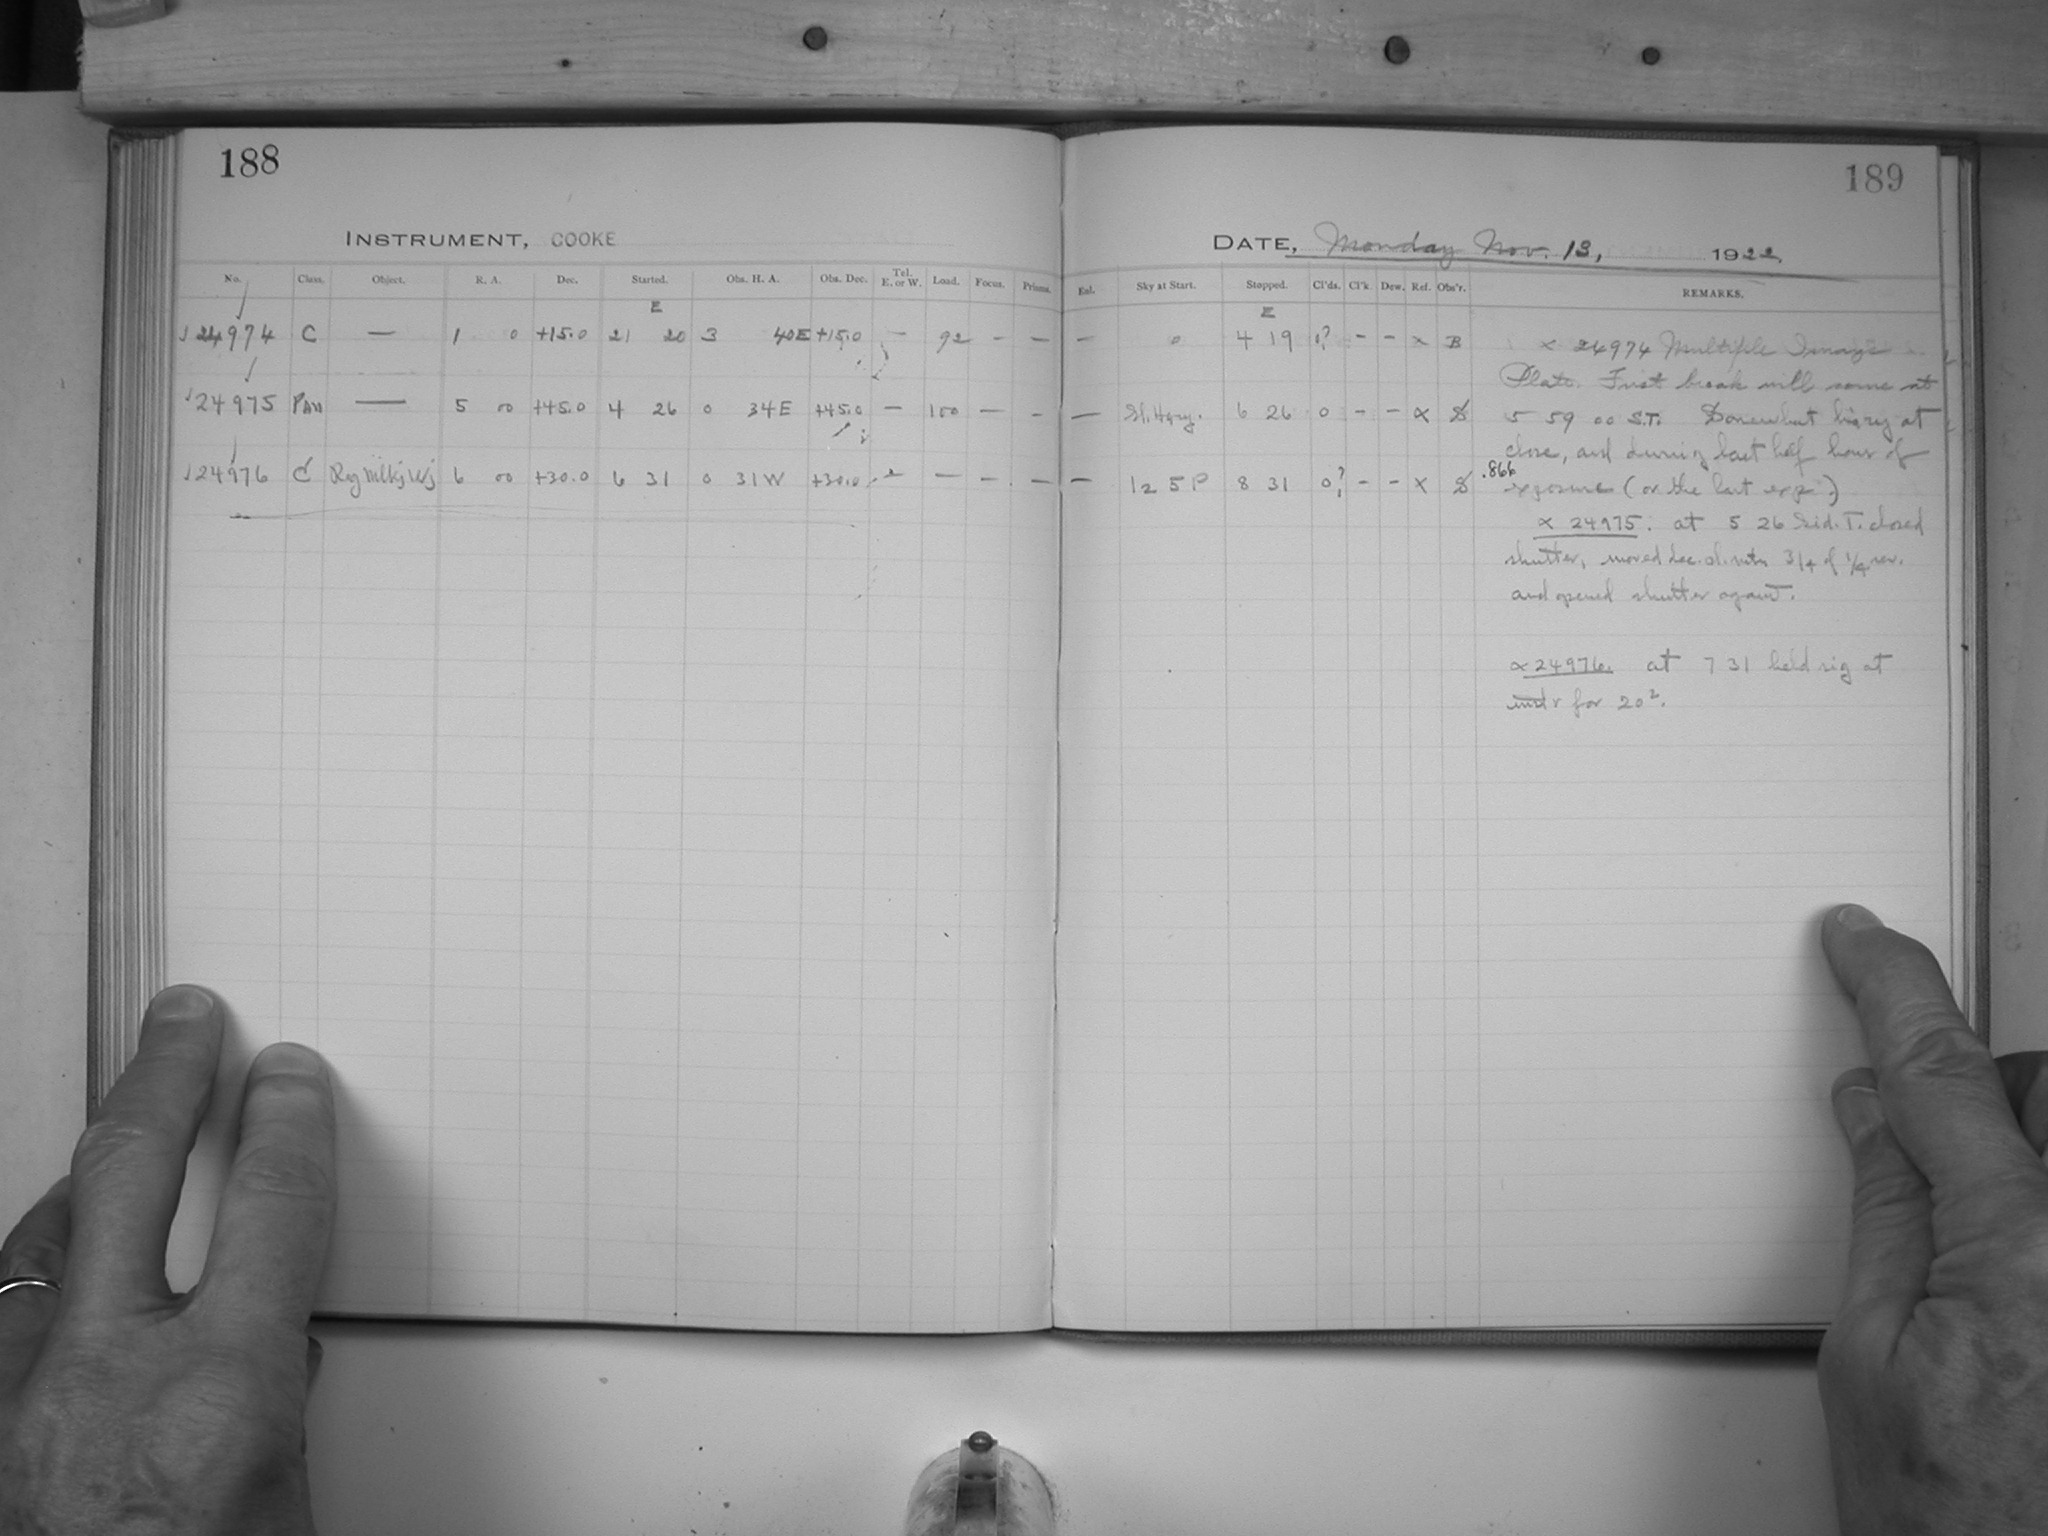 188
189
INSTRUMENT, COOKE
DATE, Monday Nov. 13, 1922
No. Class. Object. R. A. Dec. Started. Obs. H. A. Obs. Dec. Tel. E. or W. Load. Focus. Prisms. Enl. Sky at Start. Stopped. Cl'ds. Cl'k. Dew. Ref. Obs'r. REMARKS.
E E
24974 C — 1 0 +15.0 21 20 3 40E +15.0 — 92 — — — 0 4 19 1? - - x B x 24974 Multiple Images
Plate. First break will come at
24975 — 5 00 +45.0 4 26 0 34E +45.0 — 100 — - — Sl. Hazy. 6 26 0 - - x S 5 59 00 S.T. Somewhat hazy at
close, and during last half hour of
24976 C Reg Milky Wy 6 00 +30.0 6 31 0 31W +30.0 - — — — — 12 5P 8 31 0? - - x S .866 exposure (or the last exp.)
x 24975: at 5 26 Sid. T. closed
shutter, moved dec. 3/4 of 1/4 rev.
and opened shutter again.
x 24976. at 7 31 held rig at
for 20